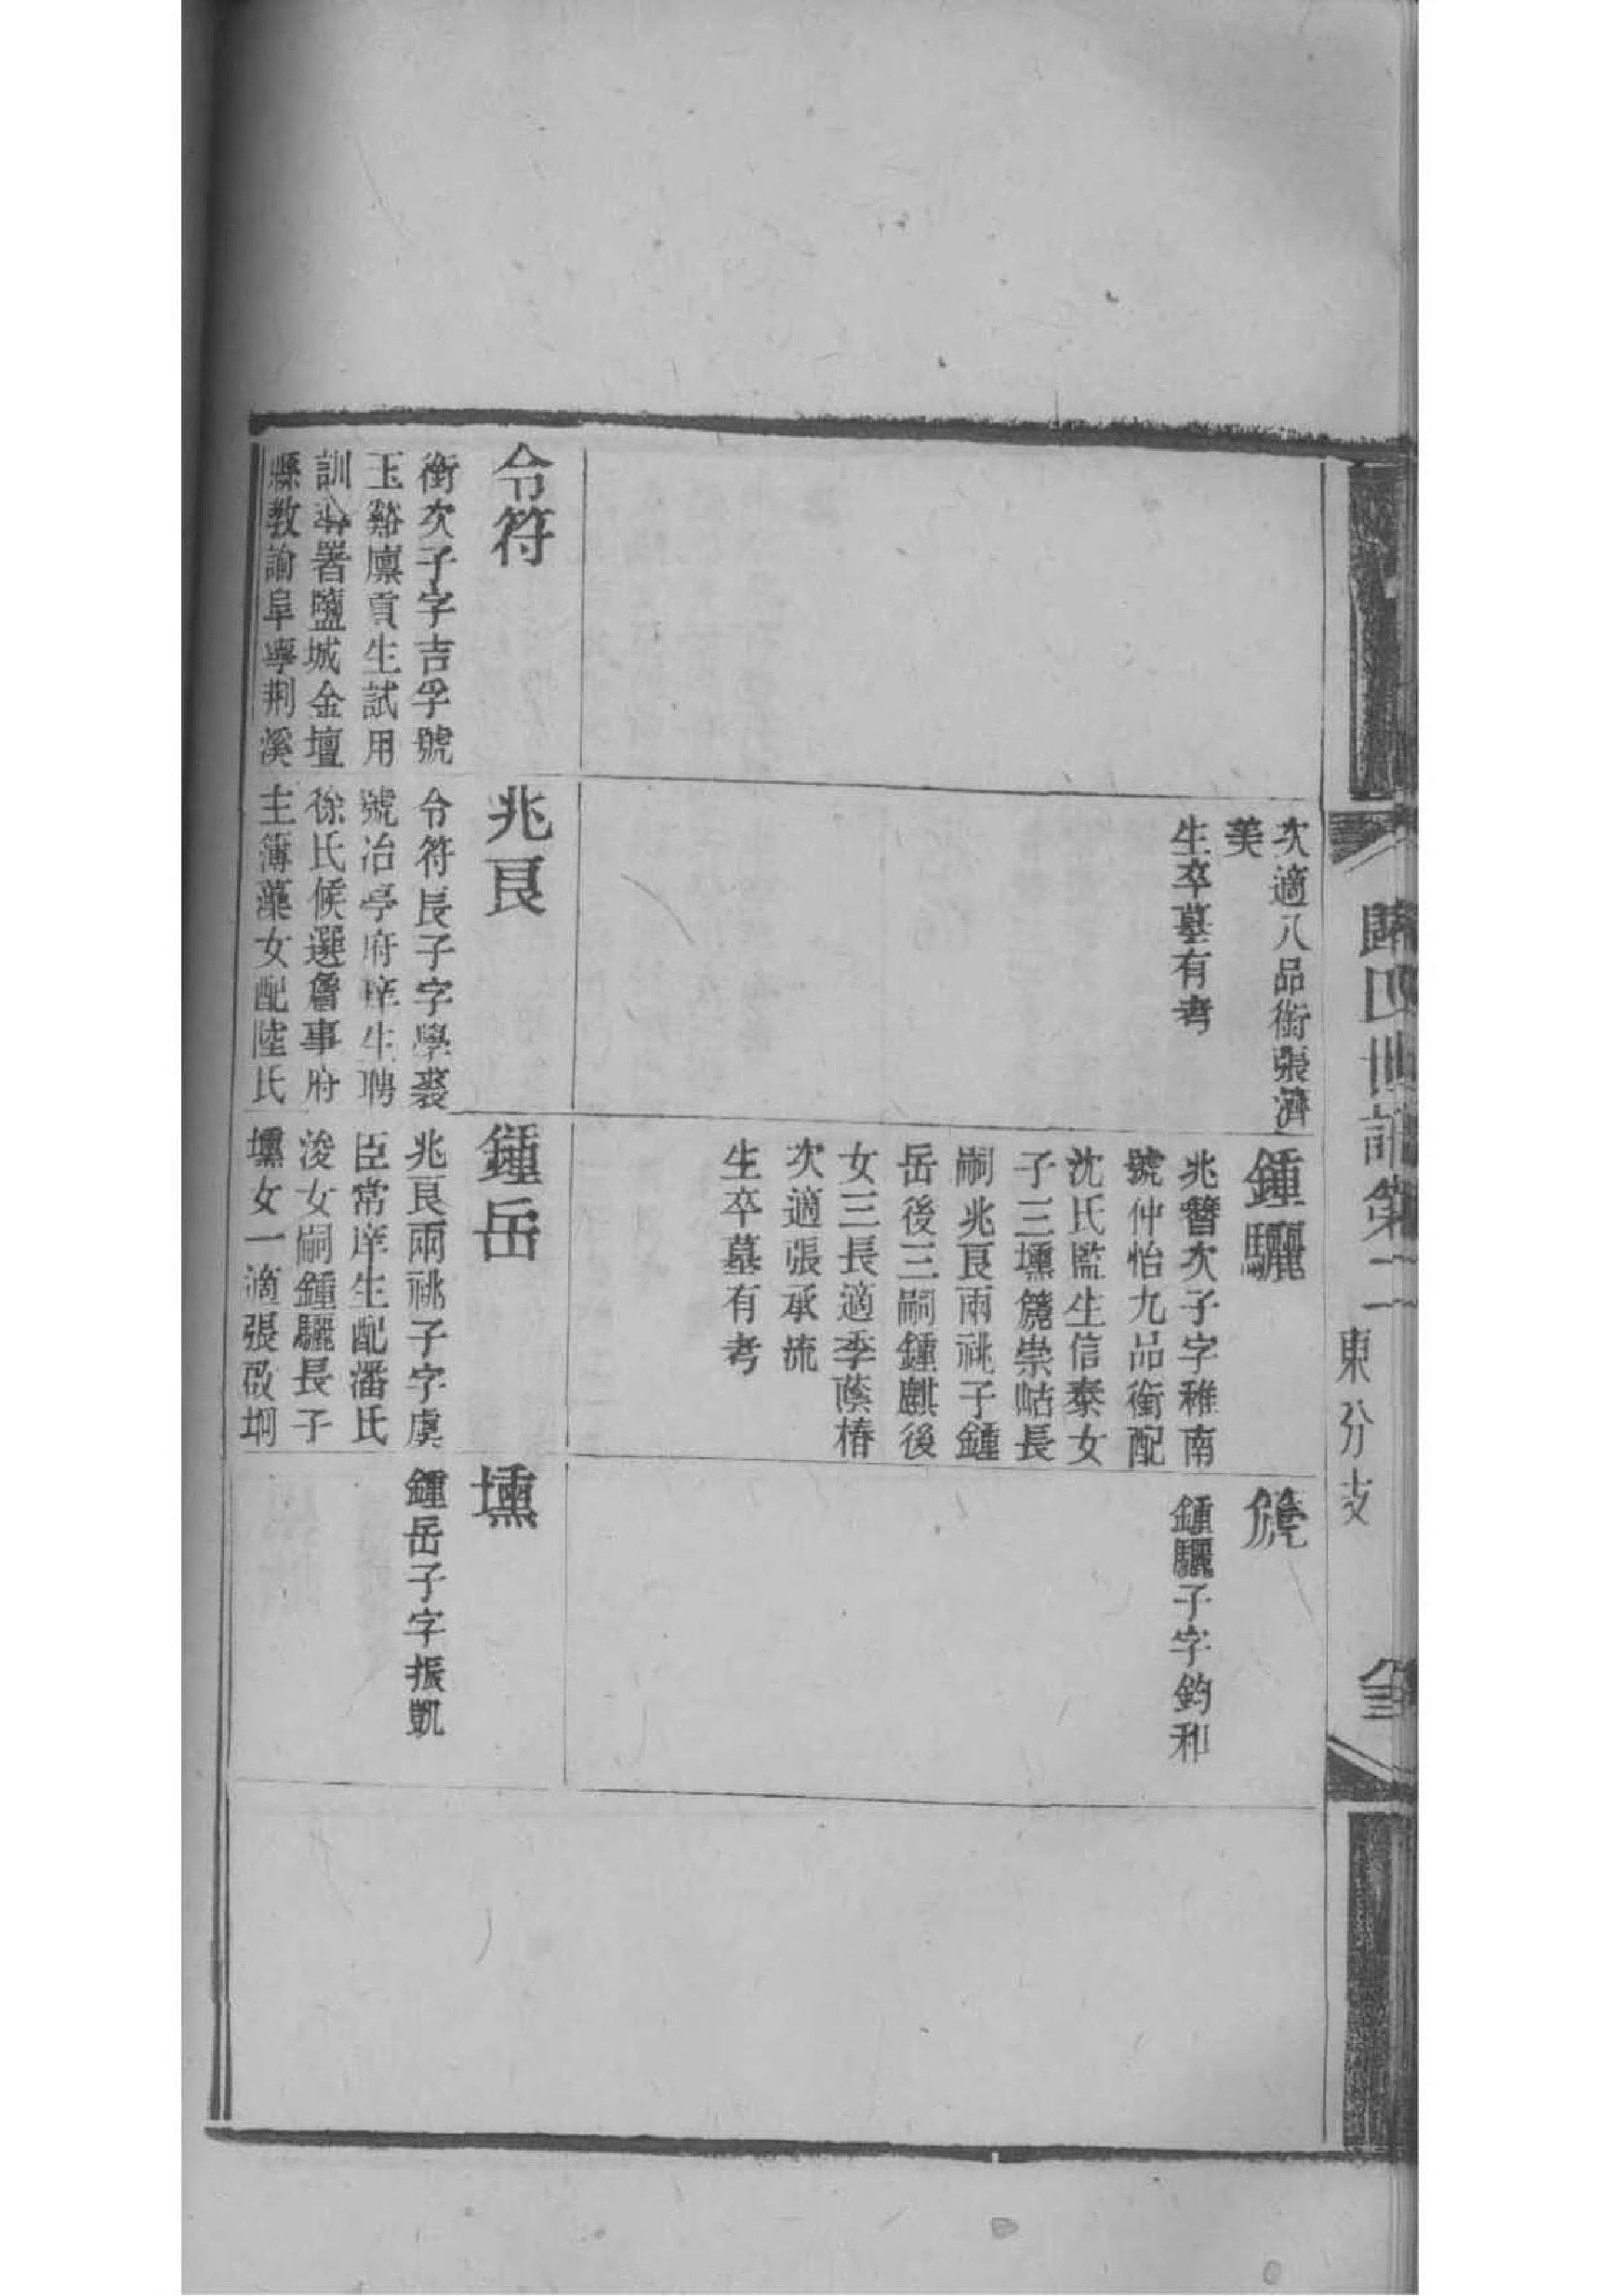 世譜第二
東分支
次適八品銜張濟
美
生卒墓有考
鍾驪
兆簪次子字稚南
號仲怡九品銜配
沈氏監生信泰女
子三壎篪崇岵長
嗣兆艮兩祧子鍾
岳後三嗣鍾麒後
女三長適季蔭椿
次適張承流
生卒墓有考
篪
鍾驪子字鈞和
令符
衡次子字吉孚號
玉谿廩貢生試用
訓導署鹽城金壇
縣教諭阜寧荆溪
兆艮
令符長子字學裘
號冶亭府庠生聘
徐氏候選詹事府
主簿藻女配陸氏
鍾岳
兆艮兩祧子字虞
臣常庠生配潘氏
浚女嗣鍾驪長子
壎女一適張啟坰
壎
鍾岳子字振凱